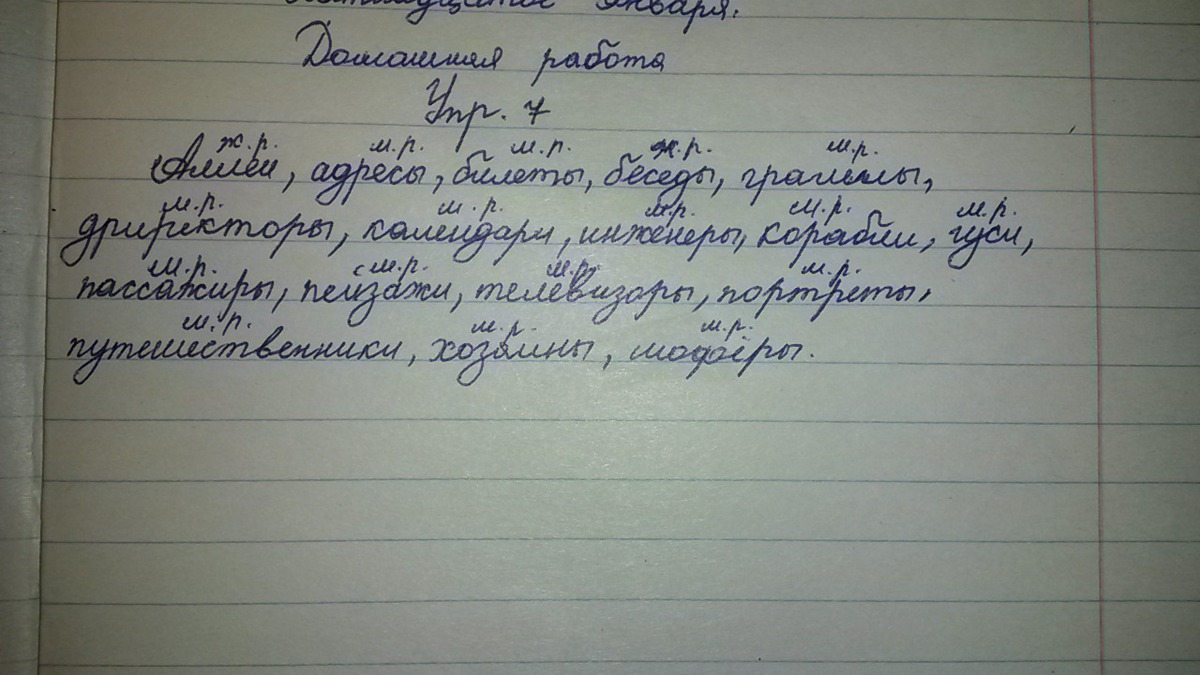 января.
Домашняя работа
Упр. 7
ж.р. м.р. м.р. ж.р. м.р.
Аллеи, адреса, билеты, беседы, граммы,
м.р. м.р. м.р. м.р. м.р.
дриректоры, календари, инженеры, корабли, гуси,
м.р. м.р. м.р. м.р.
пассажиры, пейзажи, телевизоры, портреты,
м.р. м.р. м.р.
путешественники, хозяины, шофёры.